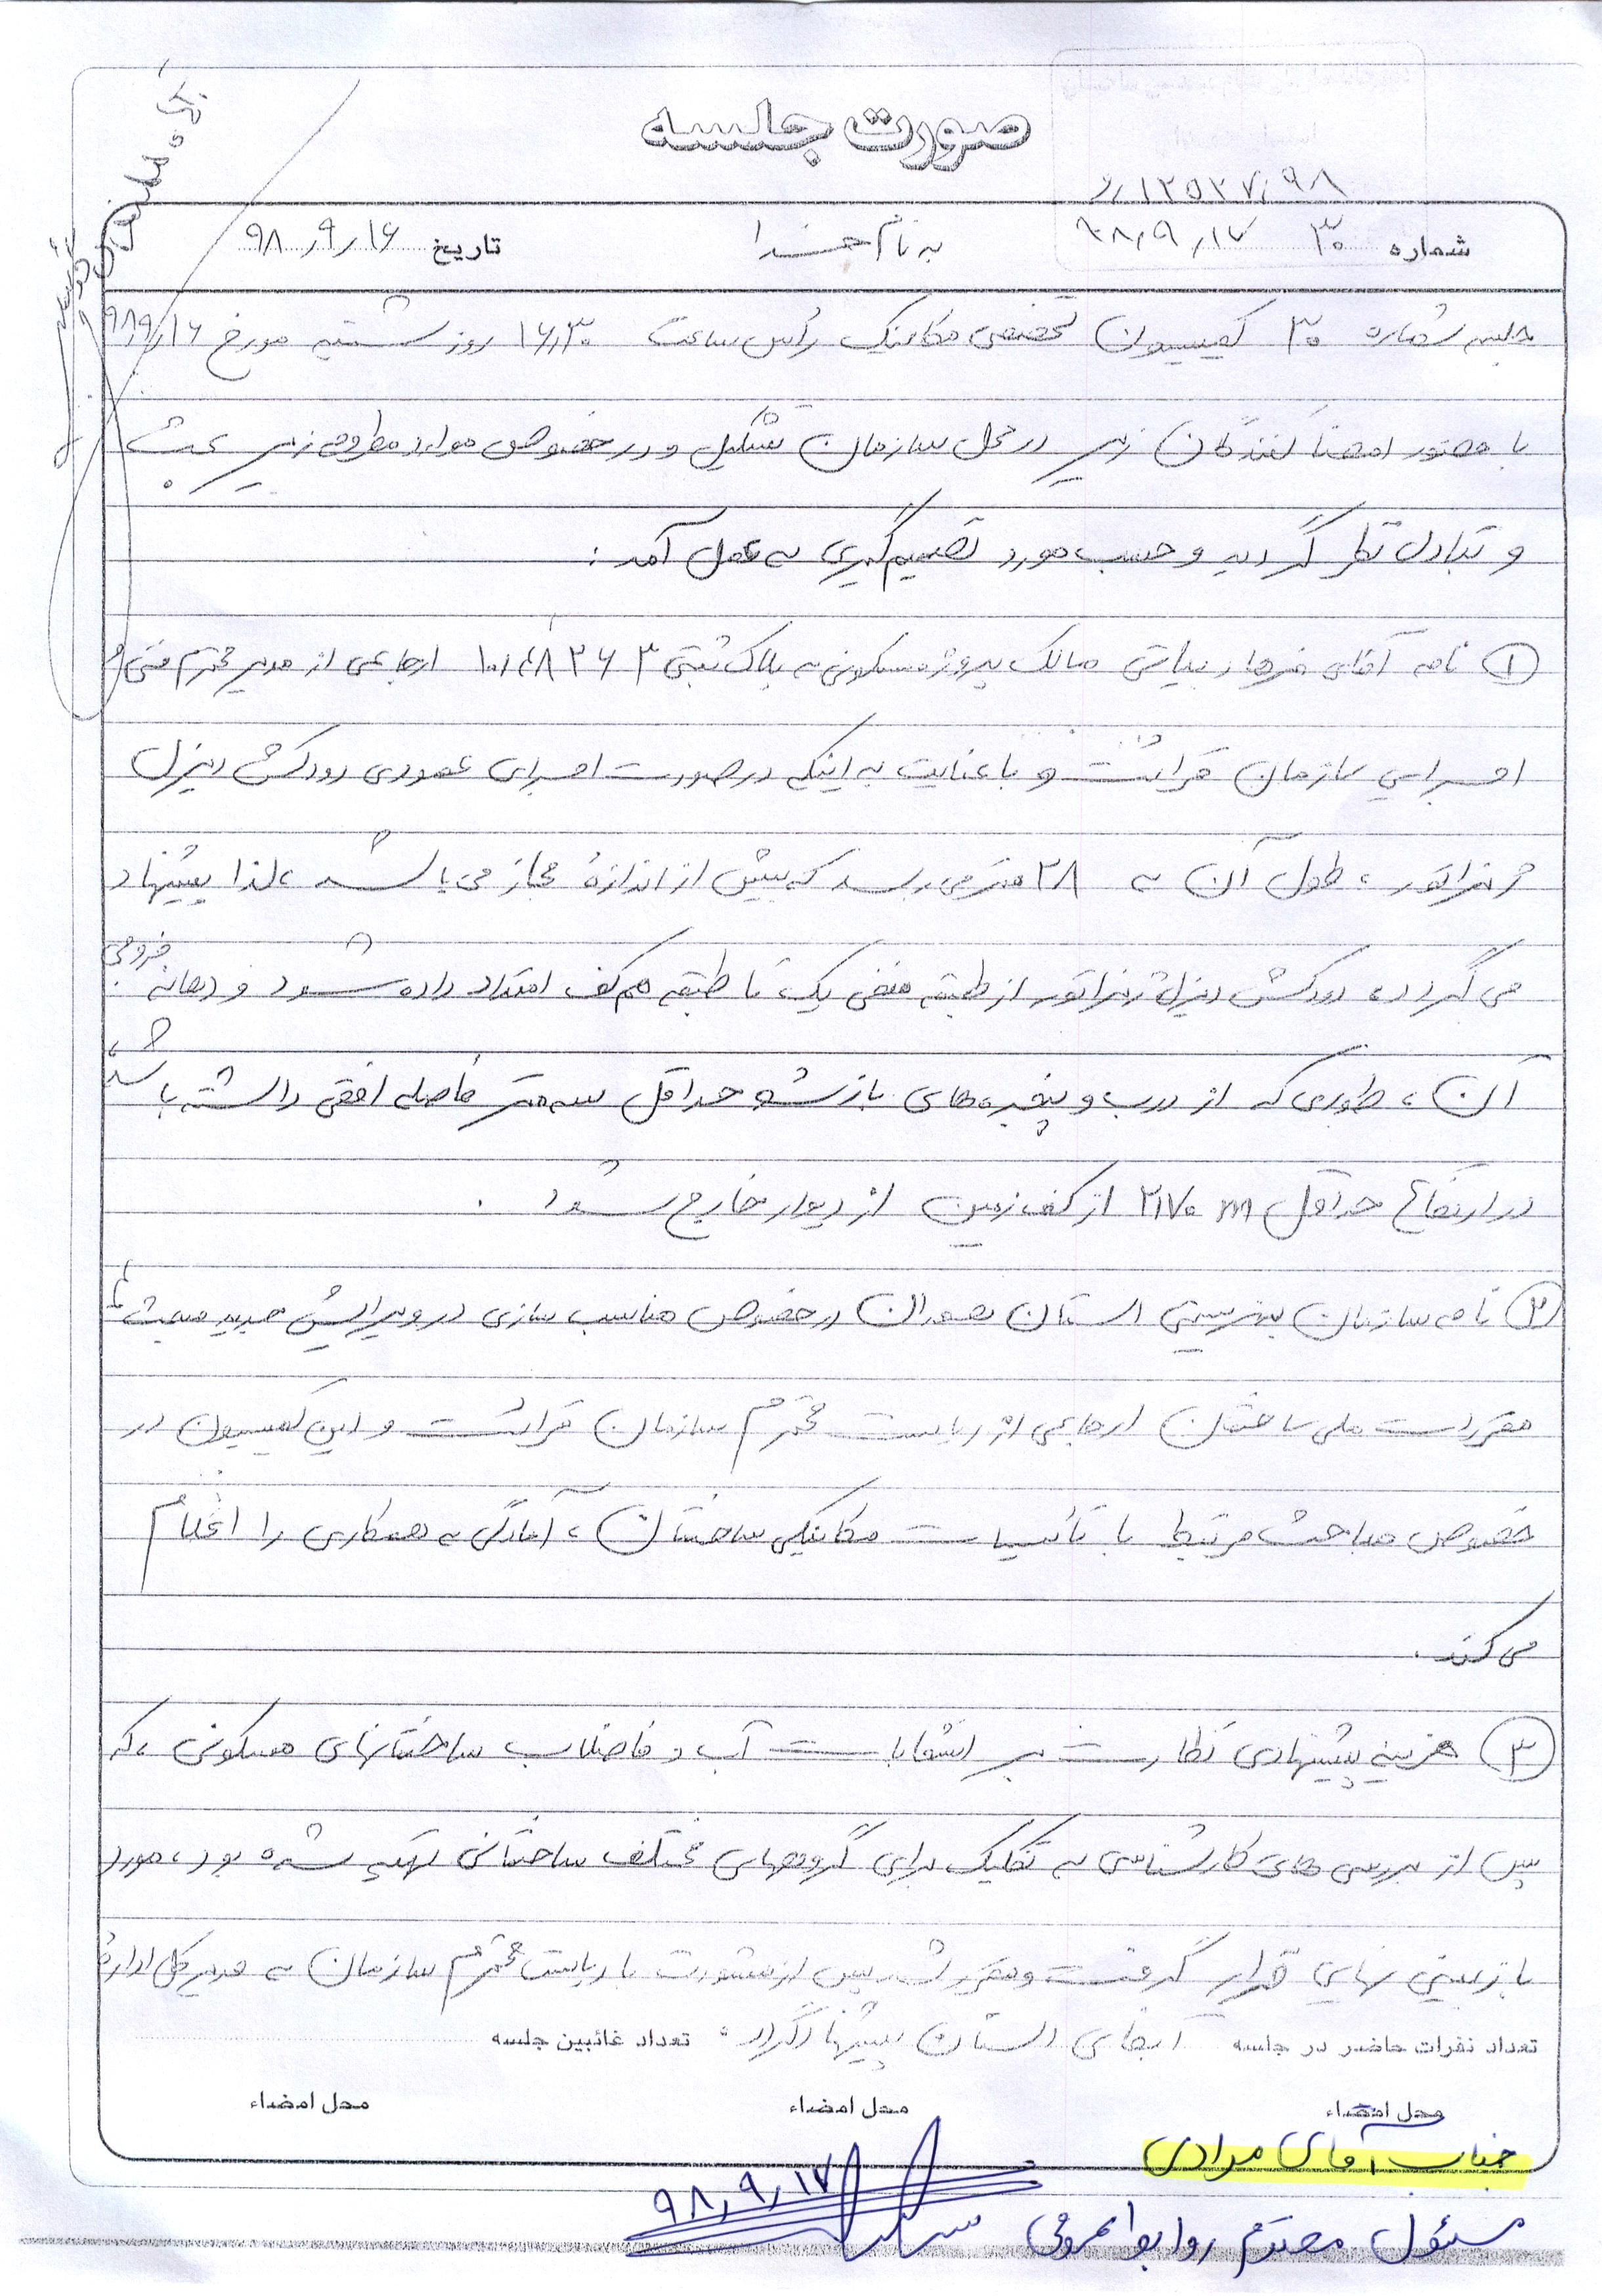 صورت جلسه
۹۸،۱۲۵۲۷
شماره ۳۰ ۹۸٫۹٫۱۷ به نام خدا تاریخ ۹۸٫۹٫۱۶
جلسه شماره ۳۰ کمیسیون تخصصی مکانیک رأس ساعت ۱۶٫۳۰ روز شنبه مورخ ۹۸٫۹٫۱۶
با حضور امضا کنندگان زیر در محل سازمان تشکیل و در خصوص موارد مطروحه زیر بحث
و تبادل نظر گردید و حسب مورد تصمیم گیری به عمل آمد :
① نامه آقای فرهاد بیاتی مالک پروژه مسکونی به پلاک ثبتی ارجاعی از مدیر محترم فنی و
اجرایی سازمان قرائت و با عنایت به اینکه در صورت اجرای عمودی دودکش دیزل
ژنراتور ، طول آن به ۲۸ متر می رسد که بیش از اندازهٔ مجاز می باشد ، لذا پیشنهاد
می گردد، دودکش دیزل ژنراتور از طبقه منفی یک تا طبقه همکف امتداد داده شود و دهانه خروجی
آن ، طوری که از درب و پنجره های بازشو حداقل سه متر فاصله افقی داشته باشد ،
در ارتفاع حداقل ۲٫۷۰ m از کف زمین از دیوار خارج شود .
② نامه سازمان بهزیستی استان همدان در خصوص مناسب سازی در ویرایش جدید مبحث
مقررات ملی ساختمان ارجاعی از ریاست محترم سازمان قرائت و این کمیسیون در
خصوص مباحث مرتبط با تأسیسات مکانیکی ساختمان ، آمادگی به همکاری را اعلام
می کند .
③ هزینه پیشنهادی نظارت بر انشعابات آب و فاضلاب ساختمانهای مسکونی ، که
پس از بررسی های کارشناسی به تفکیک برای گروههای مختلف ساختمانی تهیه شده بود ، مورد
بازبینی نهایی قرار گرفت و مقرر شد پس از مشورت با ریاست محترم سازمان به مدیرکل ادارهٔ
آبفای استان پیشنهاد گردد .
تعداد نفرات حاضر در جلسه تعداد غائبین جلسه
محل امضاء محل امضاء محل امضاء
جناب آقای مرادی
مسئول محترم روابط عمومی
۹۸٫۹٫۱۷